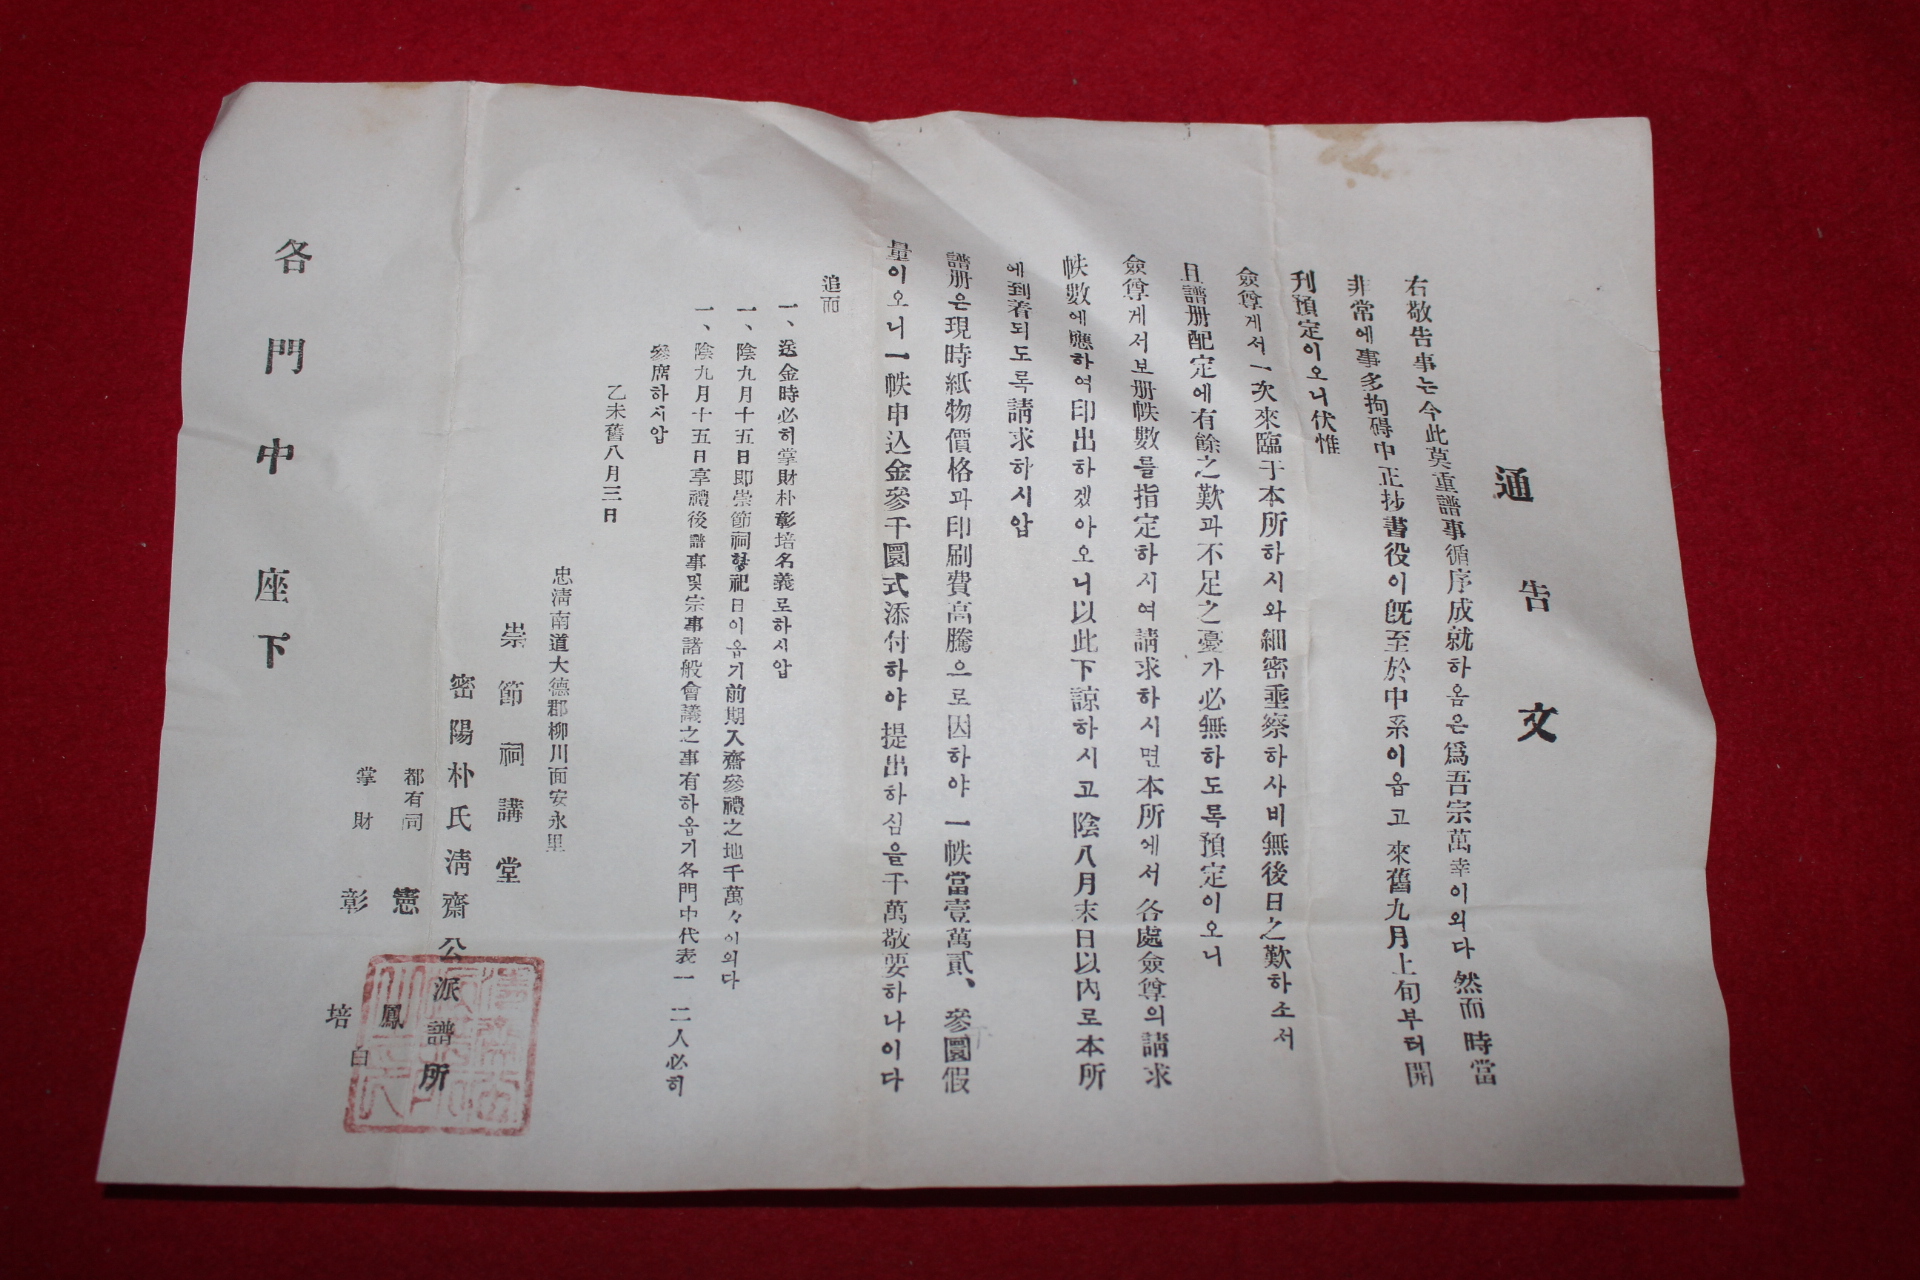 通告文
右敬告事는今此莫重譜事循序成就하옴은爲吾宗萬幸이외다然而時當
非常에事多拘碍中正抄書役이旣至於中系이옵고來舊九月上旬부터開
刊預定이오니伏惟
僉尊게서一次來臨于本所하시와細密垂察하사비無後日之歎하소서
且譜册配定에有餘之歎과不足之憂가必無하도록預定이오니
僉尊게서보册帙數를指定하시여請求하시면本所에서各處僉尊의請求
帙數에應하여印出하겠아오니以此下諒하시고陰八月末日以內로本所
에到着되도록請求하시압
譜册은現時紙物價格과印刷費高騰으로因하야一帙當壹萬貳、參圜假
量이오니一帙申込金參千圜式添付하야提出하심을千萬敬要하나이다
追而
一、送金時必히掌財朴彰培名義로하시압
一、陰九月十五日即崇節祠향祀日이옵기前期入齋參禮之地千萬々이외다
一、陰九月十五日享禮後譜事및宗事諸般會議之事有하옵기各門中代表一 二人必히
參席하시압
乙未舊八月三日
忠淸南道大德郡柳川面安永里
崇節祠講堂
密陽朴氏淸齋公派譜所
都有司 憲鳳
掌財 彰培 白
各門中座下